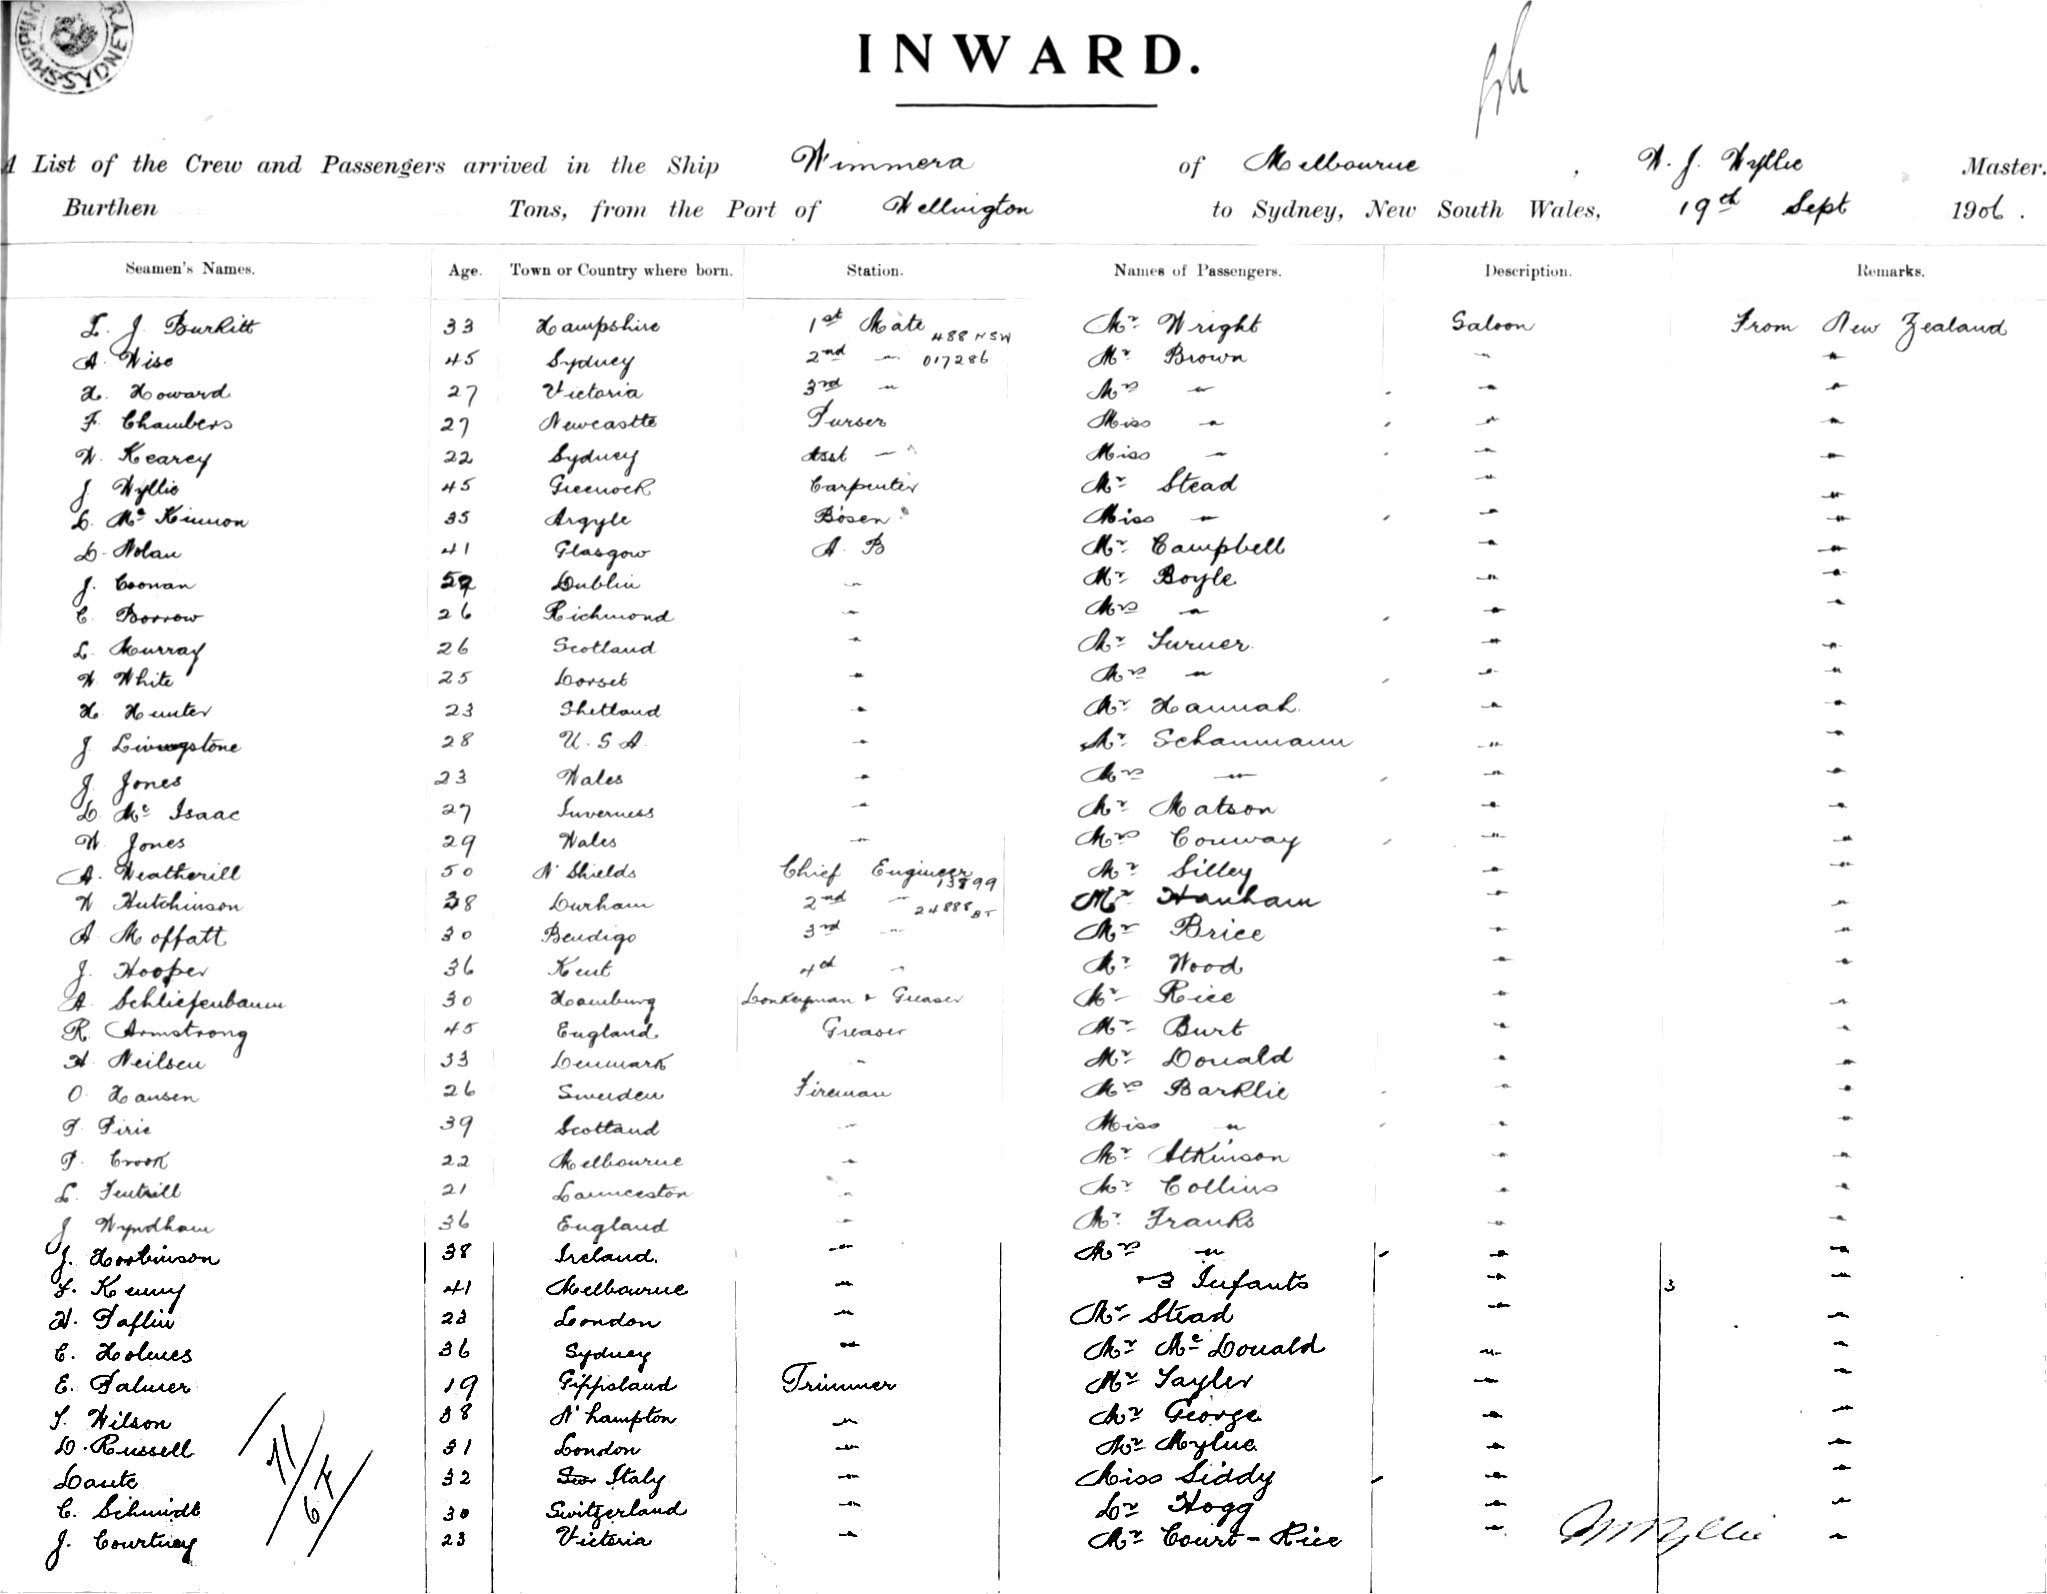 SHIPPING SYDNEY
INWARD.
A List of the Crew and Passengers arrived in the Ship Wimmera of Melbourne, W. J. Wyllie Master.
Burthen Tons, from the Port of Wellington to Sydney, New South Wales, 19th Sept 1906.
Seamen's Names. Age. Town or Country where born. Station. Names of Passengers. Description. Remarks.
L. J. Burkitt 33 Hampshire 1st Mate 488 NSW Mr Wright Saloon From New Zealand
A. Wise 45 Sydney 2nd " 017286 Mr Brown " "
H. Howard 27 Victoria 3rd " Mrs " " "
F. Chambers 27 Newcastle Purser Miss " " "
W. Kearey 22 Sydney Asst " Miss " " "
J Wyllie 45 Greenock Carpenter Mr Stead " "
D. Mc Kinnon 35 Argyle Bosen Miss " " "
D. Nolan 41 Glasgow A. B Mr Campbell " "
J. Coonan Dublin " Mr Boyle " "
C. Borrow 26 Richmond " Mrs " " "
L. Murray 26 Scotland " Mr Turner " "
W White 25 Dorset " Mrs " " "
H. Hunter 23 Shetland " Mr Hannah " "
J. Livingstone 28 U. S A. " Mr Schanmann " "
J. Jones 23 Wales " Mrs " " "
D. Mc Isaac 27 Inverness " Mr Matson " "
W. Jones 29 Wales " Mrs Conway " "
A. Weatherill 50 N' Shields Chief Engineer 13899 Mr Silley " "
W Hutchinson 38 Durham 2nd " 24888 BT Mr Hanham " "
A Moffatt 30 Bendigo 3rd " Mr Brice " "
J. Hooper 36 Kent 4th " Mr Wood " "
A. Schliefenbaum 30 Hamburg Donkeyman & Greaser Mr Rice " "
R. Armstrong 45 England Greaser Mr Burt " "
H. Neilsen 33 Denmark " Mr Donald " "
O. Hansen 26 Sweden Fireman Mrs Barklie " "
P. Pirie 39 Scotland " Miss " " "
P. Crook 22 Melbourne " Mr Atkinson " "
L. 21 Launceston " Mr Collins " "
J Wyndham 36 England " Mr Franks " "
J. 38 Ireland. " Mrs " " "
Kenny 41 Melbourne " 3 Infants " 3 "
H. Paflin 23 London " Mr Stead " "
C. Holmes 36 Sydney " Mr Mc Donald " "
E. Palmer 19 Gippsland Trimmer Mr Tayler " "
T. Wilson 38 N' hampton " Mr George " "
D. Russell 31 London " Mr Mylne " "
Dante 32 Italy " Miss Siddy " "
C. Schmidt 30 Switzerland " Dr Hogg " "
J. Courtney 23 Victoria " Mr Court-Rice " "
71/67/
W J Wyllie